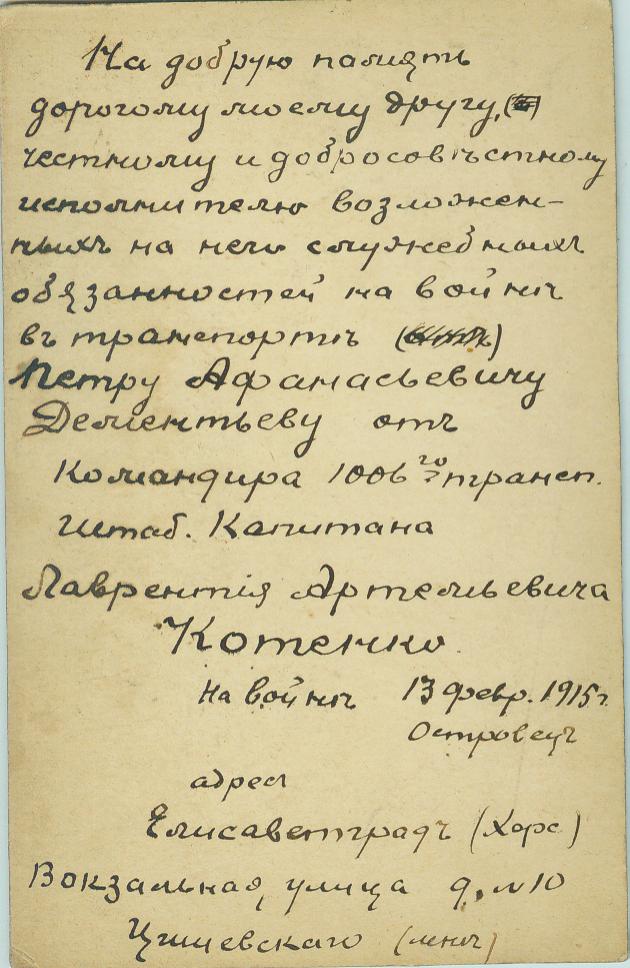 На добрую память
дорогому моему другу,
честному и добросовѣстному
исполнителю возложен-
ныхъ на него служебныхъ
обязанностей на войнѣ
въ транспортѣ
Петру Афанасьевичу
Дементьеву отъ
Командира 1006го трансп.
Штаб. Капитана
Лаврентія Артемьевича
Котенко.
На войнѣ 13 февр. 1915 г.
Островецъ
адресъ
Елисаветградъ (Херс)
Вокзальная улица д. № 10